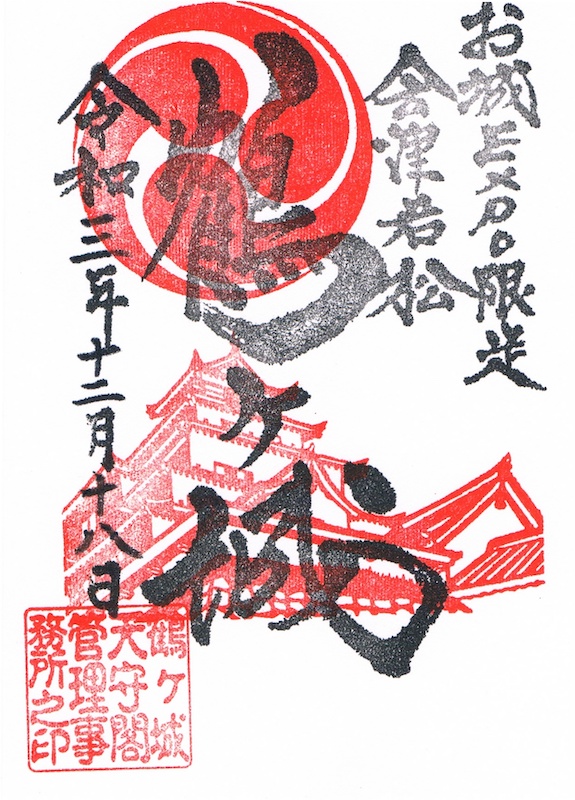 お城EXPO限定
会津若松
鶴ヶ城
令和三年十二月十八日
鶴ヶ城
天守閣
管理事
務所之印